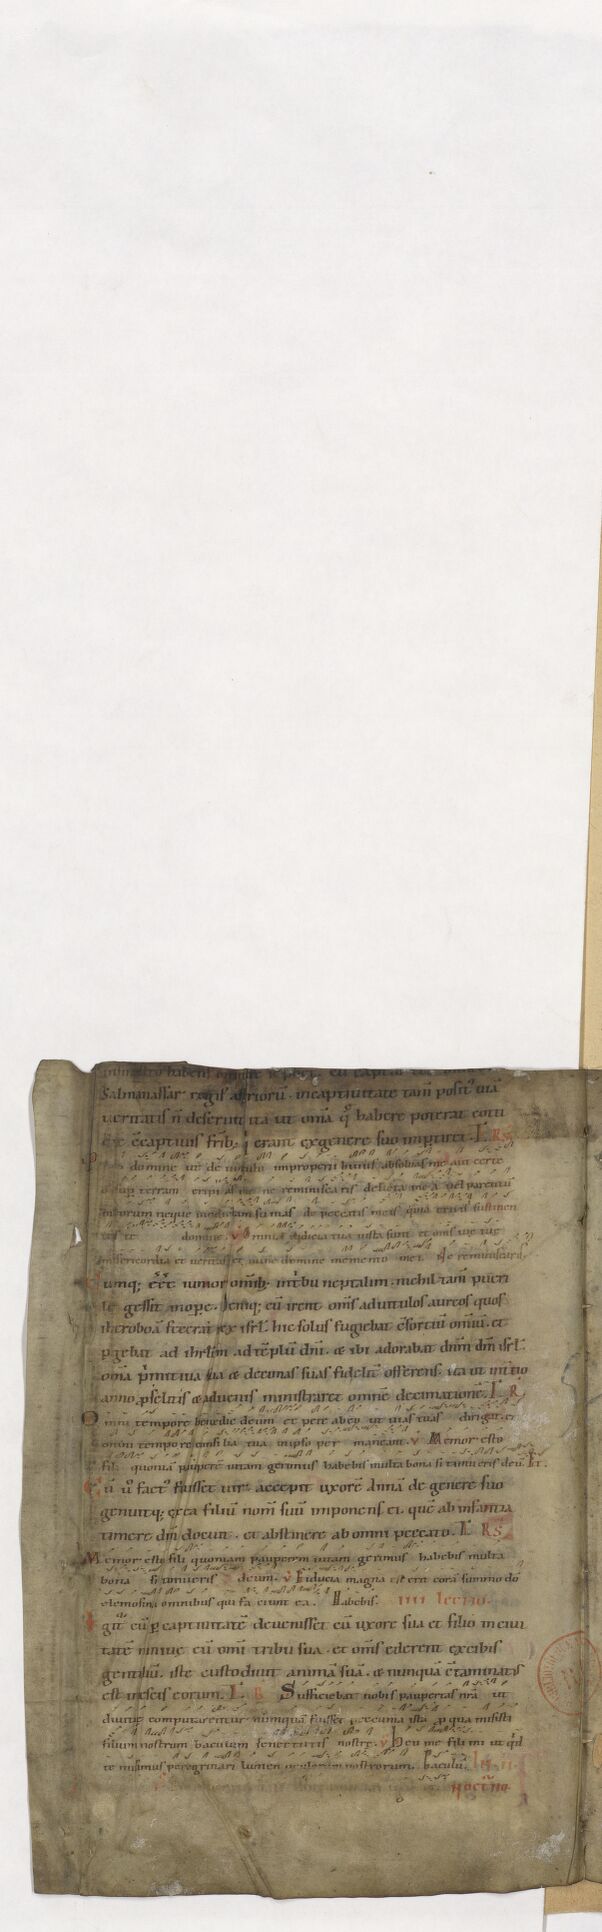 Salmanassar regis assiriorū. incaptiuitate tam̄ posit' uiā
ueritatis n̄ deseruit ita ut om̄ia q̨ habere poterat cotti
die c̄captiuis frīb; q̄ erant exgenere suo impertiret. L RS
domine ut de uinculo improperii huius absoluas me aut certe
sup terram eripias me ne reminiscaris delicta mea uel parentū
meorum neque uindictam sumas de peccatis meis quia eruis sustinen
tes te domine. v Omnia iudicia tua iusta sunt et om̄s uię tuę
misericordia et ueritas et nunc domine memento mei. Ne reminiscaris
Cumq; eēt iunior omīb; intribu neptalim. nichil tam̄ pueri
le gessit inope. Deniq; cū irent om̄s aduitulos aureos quos
iheroboā fecerat rex isrl. hic solus fugiebat c̄sortiū omniū. et
p̄gebat ad ihrlm̄ ad tēplū dn̄i. & ibi adorabat dn̄m dm̄ isrl.
om̄ia p̄mitiua sua & decimas suas fidelit̄ offerens. ita ut intertio
anno p̄selitis & aduenis ministraret omnē decimationē. L R
Omni tempore benedic deum et pete abeo ut uias tuas dirigat. et
omni tempore consilia tua inipso permaneant. v Memor esto
fili quoniā pauperē uitam gerimus habebis multa bona si timueris deū. Et.
Cū ū fact' fuisset uir. accepit uxorē Annā de genere suo
genuitq; exea filiū nom̄ suū imponens ei. quē ab infantia
timere dm̄ docuit. et abstinere ab omni peccato. L RS
Memor esto fili quoniam pauperem uitam gerimus habebis multa
bona si timueris deum. v Fiducia magna est erit corā summo dō
elemosina omnibus qui faciunt ea. Habebis. IIII lectio.
Igit' cū p̄ captiuitatē deuenisset cū uxore sua et filio inciui
tatē niniue cū om̄i tribu sua. et om̄s ederent excibis
gentiliū. iste custodiuit animā suā. & nunquā c̄taminatus
est inescis eorum. L R Sufficiebat nobis paupertas nr̄a ut
diuitię computarentur nunquā fuisset peccunia illa p̄ qua misisti
filium nostrum baculum senectutis nostrę. v Heu me fili mi ut qd̄
te misimus peregrinari lumen oculorum nostrorum. Baculū.